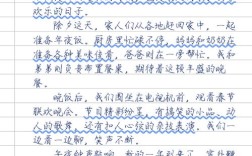 欢乐的日子。
除夕这天，家人们从各地赶回家中，一起
准备年夜饭。厨房里忙碌不停，妈妈和奶奶在
准备各种美味佳肴，爸爸则在一旁帮忙。我和
弟弟则负责布置餐桌，期待着这顿丰盛的晚
餐。
晚饭后，我们围坐在电视机前，观看春节
联欢晚会。节目精彩纷呈，有搞笑的小品、动
人的歌舞，还有扣人心弦的杂技表演。我们一
边看一边聊，笑声不断。